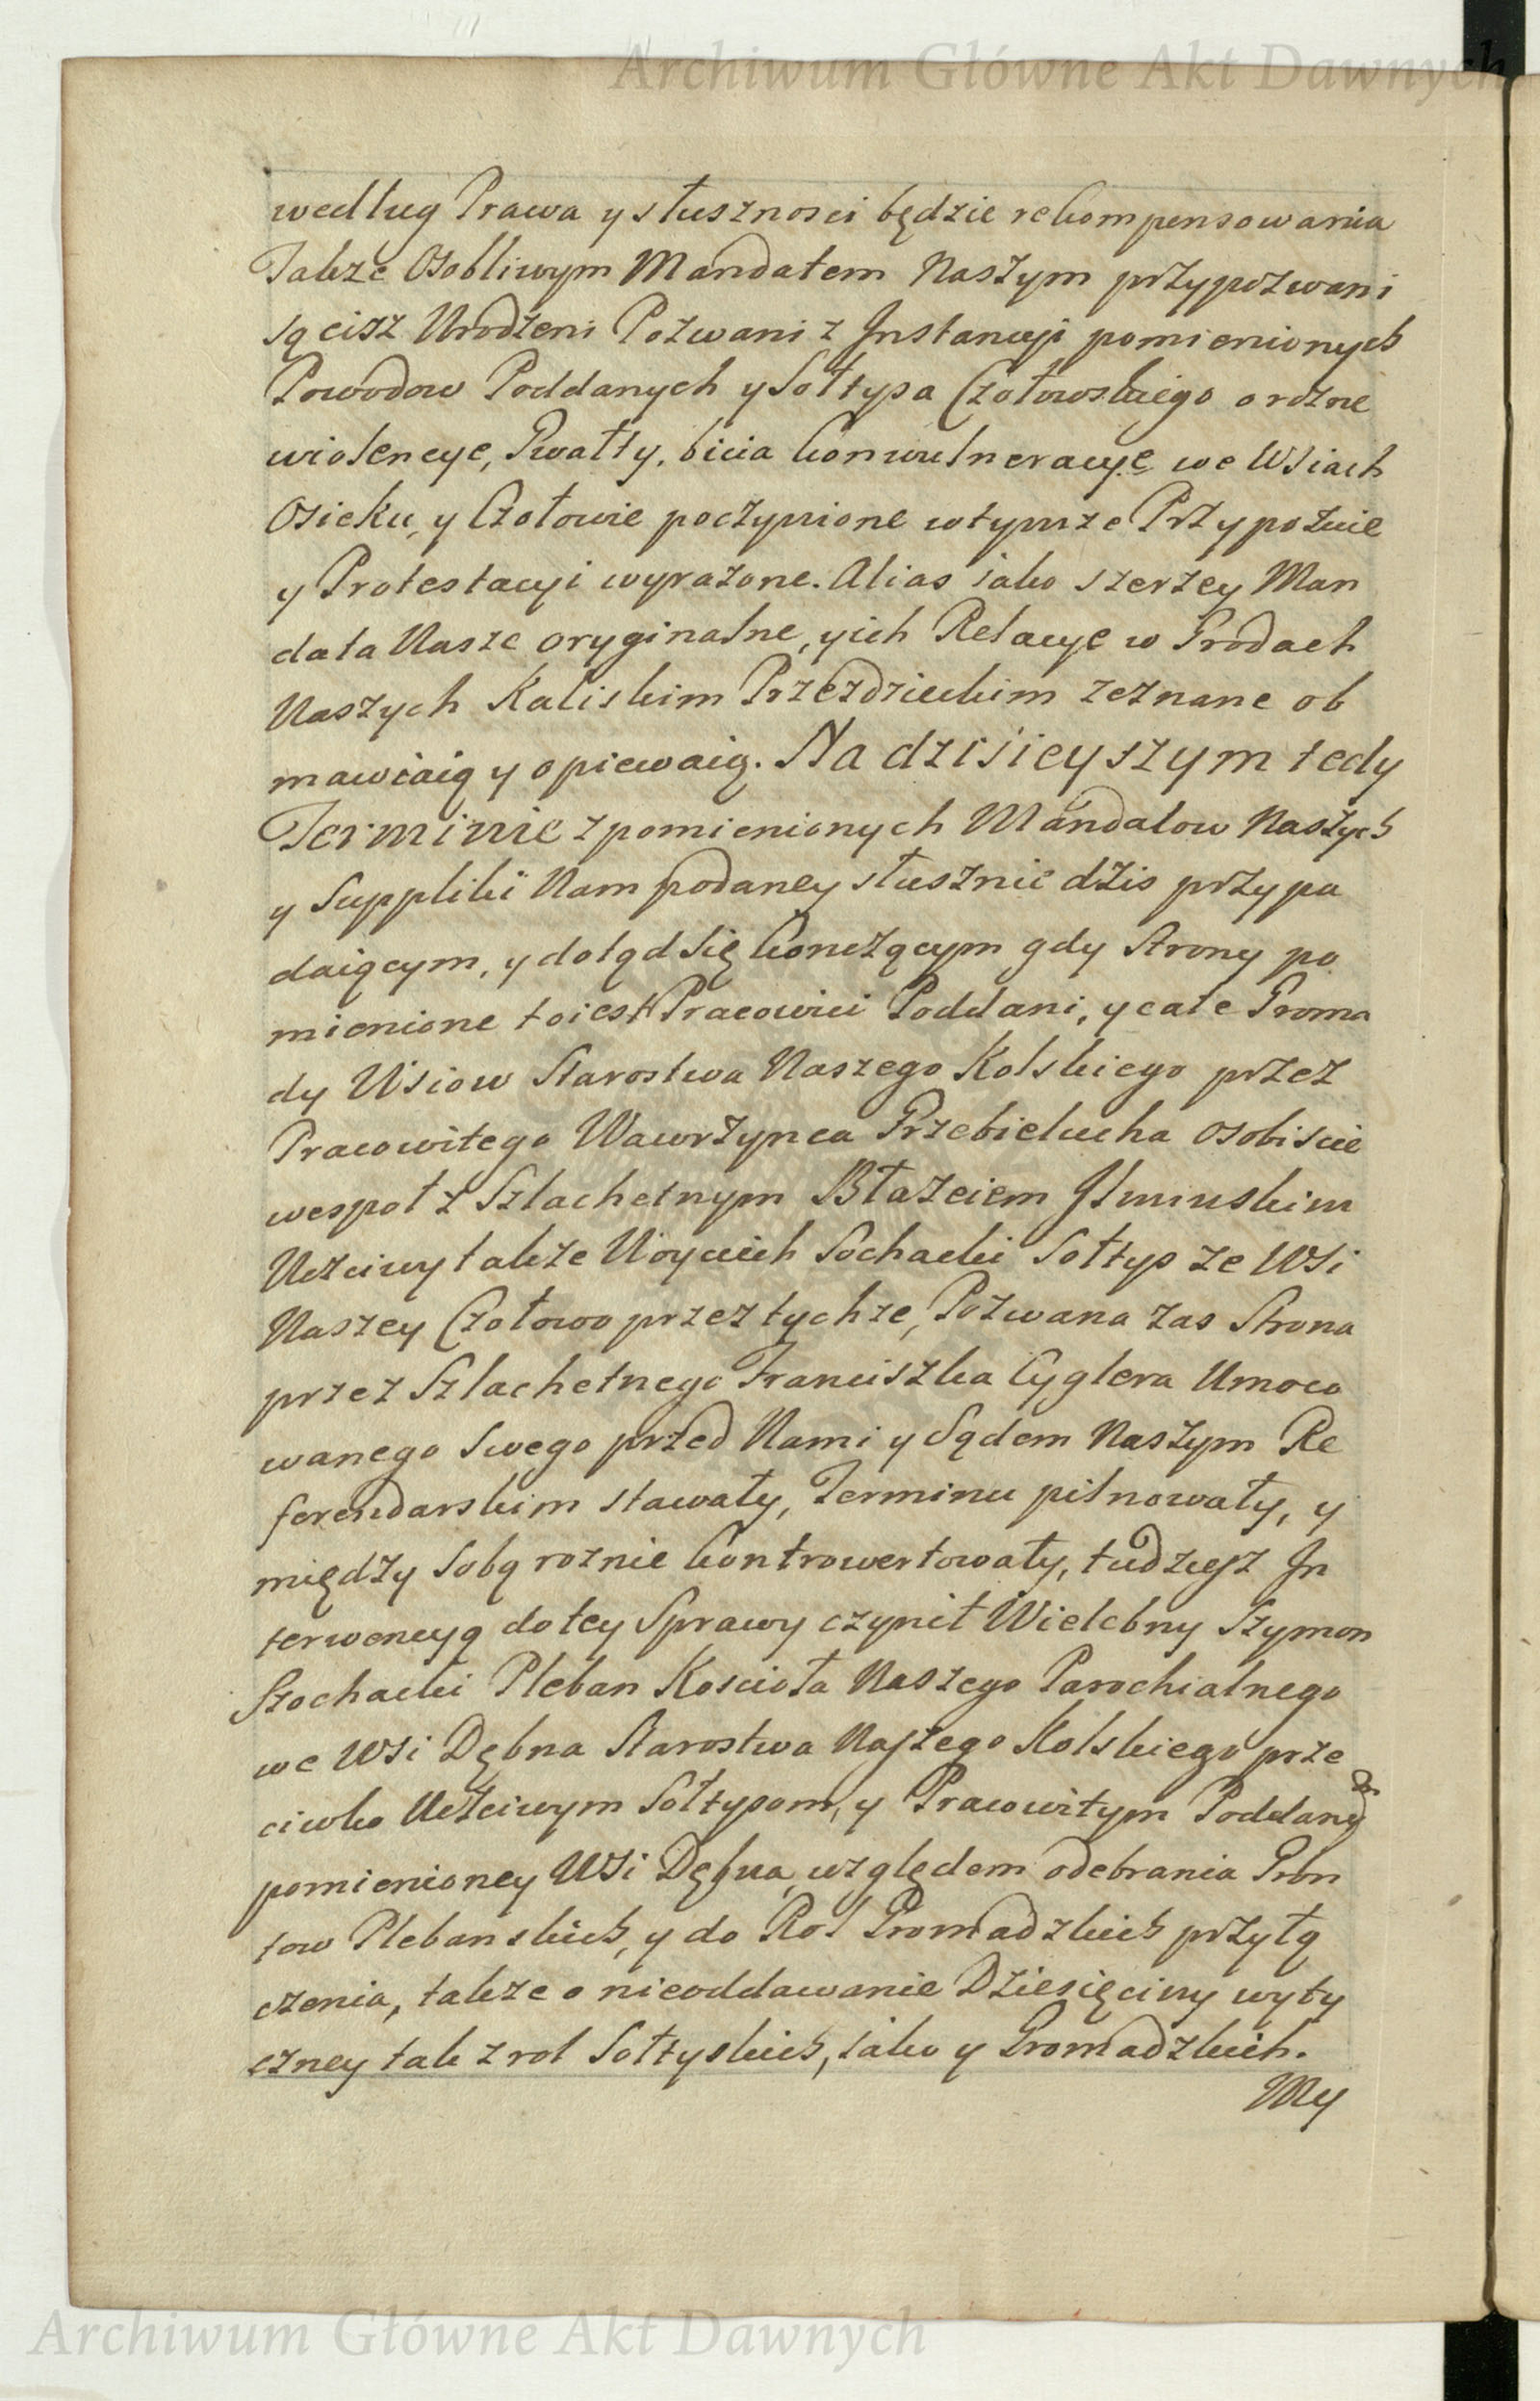 Archiwum Główne Akt Dawnych
według Prawa y słusznosci będzie rekompensowania
Takze Osobliwym Mandatem Naszym przypozwani
są cisz Urodzeni Pozwani z Instancyi pomienionych
Powodow Poddanych y Sołtysa Czołowskiego o rozne
wiolencye, Gwałty, bicia konwulneracye we Wsiach
Osieku, y Czołowie poczynione w tymze Przypozwie
y Protestacyi wyrazone. Alias iako szerzey Man
data Nasze oryginalne, y ich Relacye w Grodach
Naszych Kaliskim Przezdzieckim zeznane ob
mawiaią y opiewaią. Na dzisieyszym tedy
Terminie z pomienionych Mandatow Naszych
y Suppliki Nam podaney słusznie dzis przypa
daiącym, y dotąd się kończącym gdy Strony po
mienione to iest Pracowici Poddani, y całe Groma
dy Wsiow Starostwa Naszego Kolskiego przez
Pracowitego Wawrzynca Przebielucha osobiscie
wespoł z Szlachetnym Błazeiem
Uczciwy takze Woyciech Sochacki Sołtys ze Wsi
Naszey Czołowo przez tychze, Pozwana zas Strona
przez Szlachetnego Franciszka Cyglera Umoco
wanego Swego przed Nami y Sądem Naszym Re
ferendarskim stawały, Terminu pilnowały, y
między sobą roznie kontrowertowały, tudziesz In
terwencyą do tey Sprawy czynił Wielebny Szymon
Szochacki Pleban Koscioła Naszego Parochialnego
we Wsi Dębna Starostwa Naszego Kolskiego prze
ciwko Uczciwym Sołtysom, y Pracowitym Poddanym
pomienioney Wsi Dębna względem odebrania Grun
tow Plebanskich, y do Rol Gromadzkich przyłą
czenia, takze o nieoddawanie Dziesięciny wyty
czney tak z rol Sołtyskich, iako y Gromadzkich.
My
Archiwum Główne Akt Dawnych